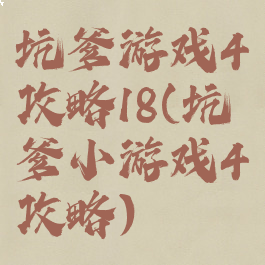 坑爹游戏4
攻略18(坑
爹小游戏4
攻略)